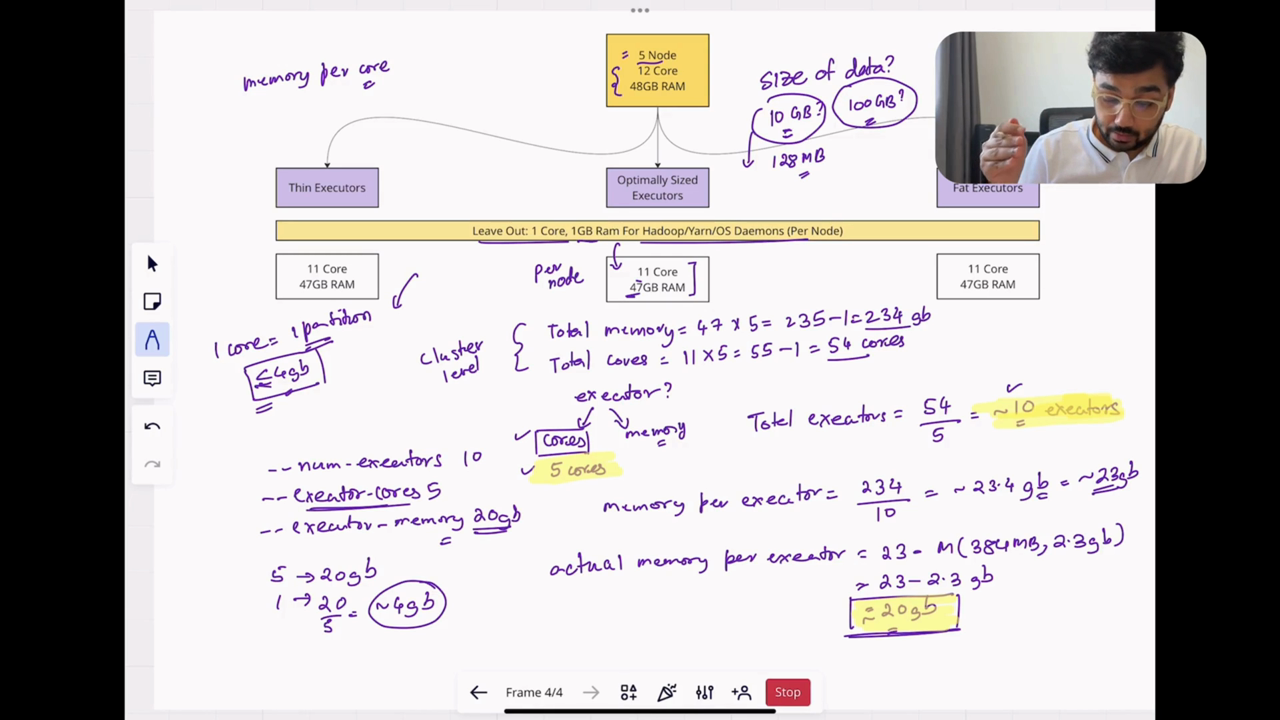 memory per core
= 5 Node
12 Core
48GB RAM
size of data?
10 GB?
100GB?
128MB
Thin Executors
Optimally Sized
Executors
Fat Executors
Leave Out: 1 Core, 1GB Ram For Hadoop/Yarn/OS Daemons (Per Node)
11 Core
47GB RAM
Per
node
11 Core
47GB RAM
11 Core
47GB RAM
1 core = 1 partition
≤4gb
cluster
level
Total memory = 47 x 5 = 235-1 = 234 gb
Total cores = 11 x 5 = 55-1 = 54 cores
executor?
cores
memory
5 cores
Total executors = 54/5 = ~10 executors
--num-executors 10
--executor-cores 5
--executor-memory 20gb
memory per executor = 234/10 = ~23.4 gb = ~23gb
actual memory per executor = 23 - M(384MB, 2.3gb)
~ 23-2.3 gb
≈ 20gb
5 → 20gb
1 → 20/5 = ~4gb
Frame 4/4
Stop